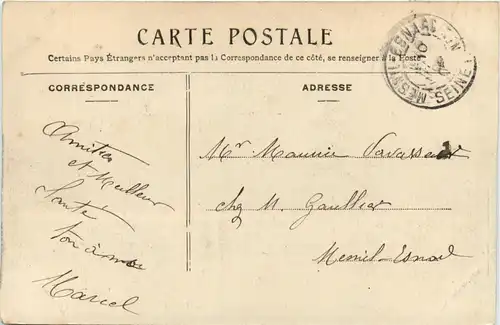 CARTE POSTALE
Certains Pays Étrangers n'acceptent pas la Correspondance de ce côté, se renseigner à la Poste
CORRESPONDANCE
ADRESSE
Amitiés
et Meilleur
Santé
Marcel
Mr Maurice Vavasseur
chez M. Gaullier
Mesnil-Esnard